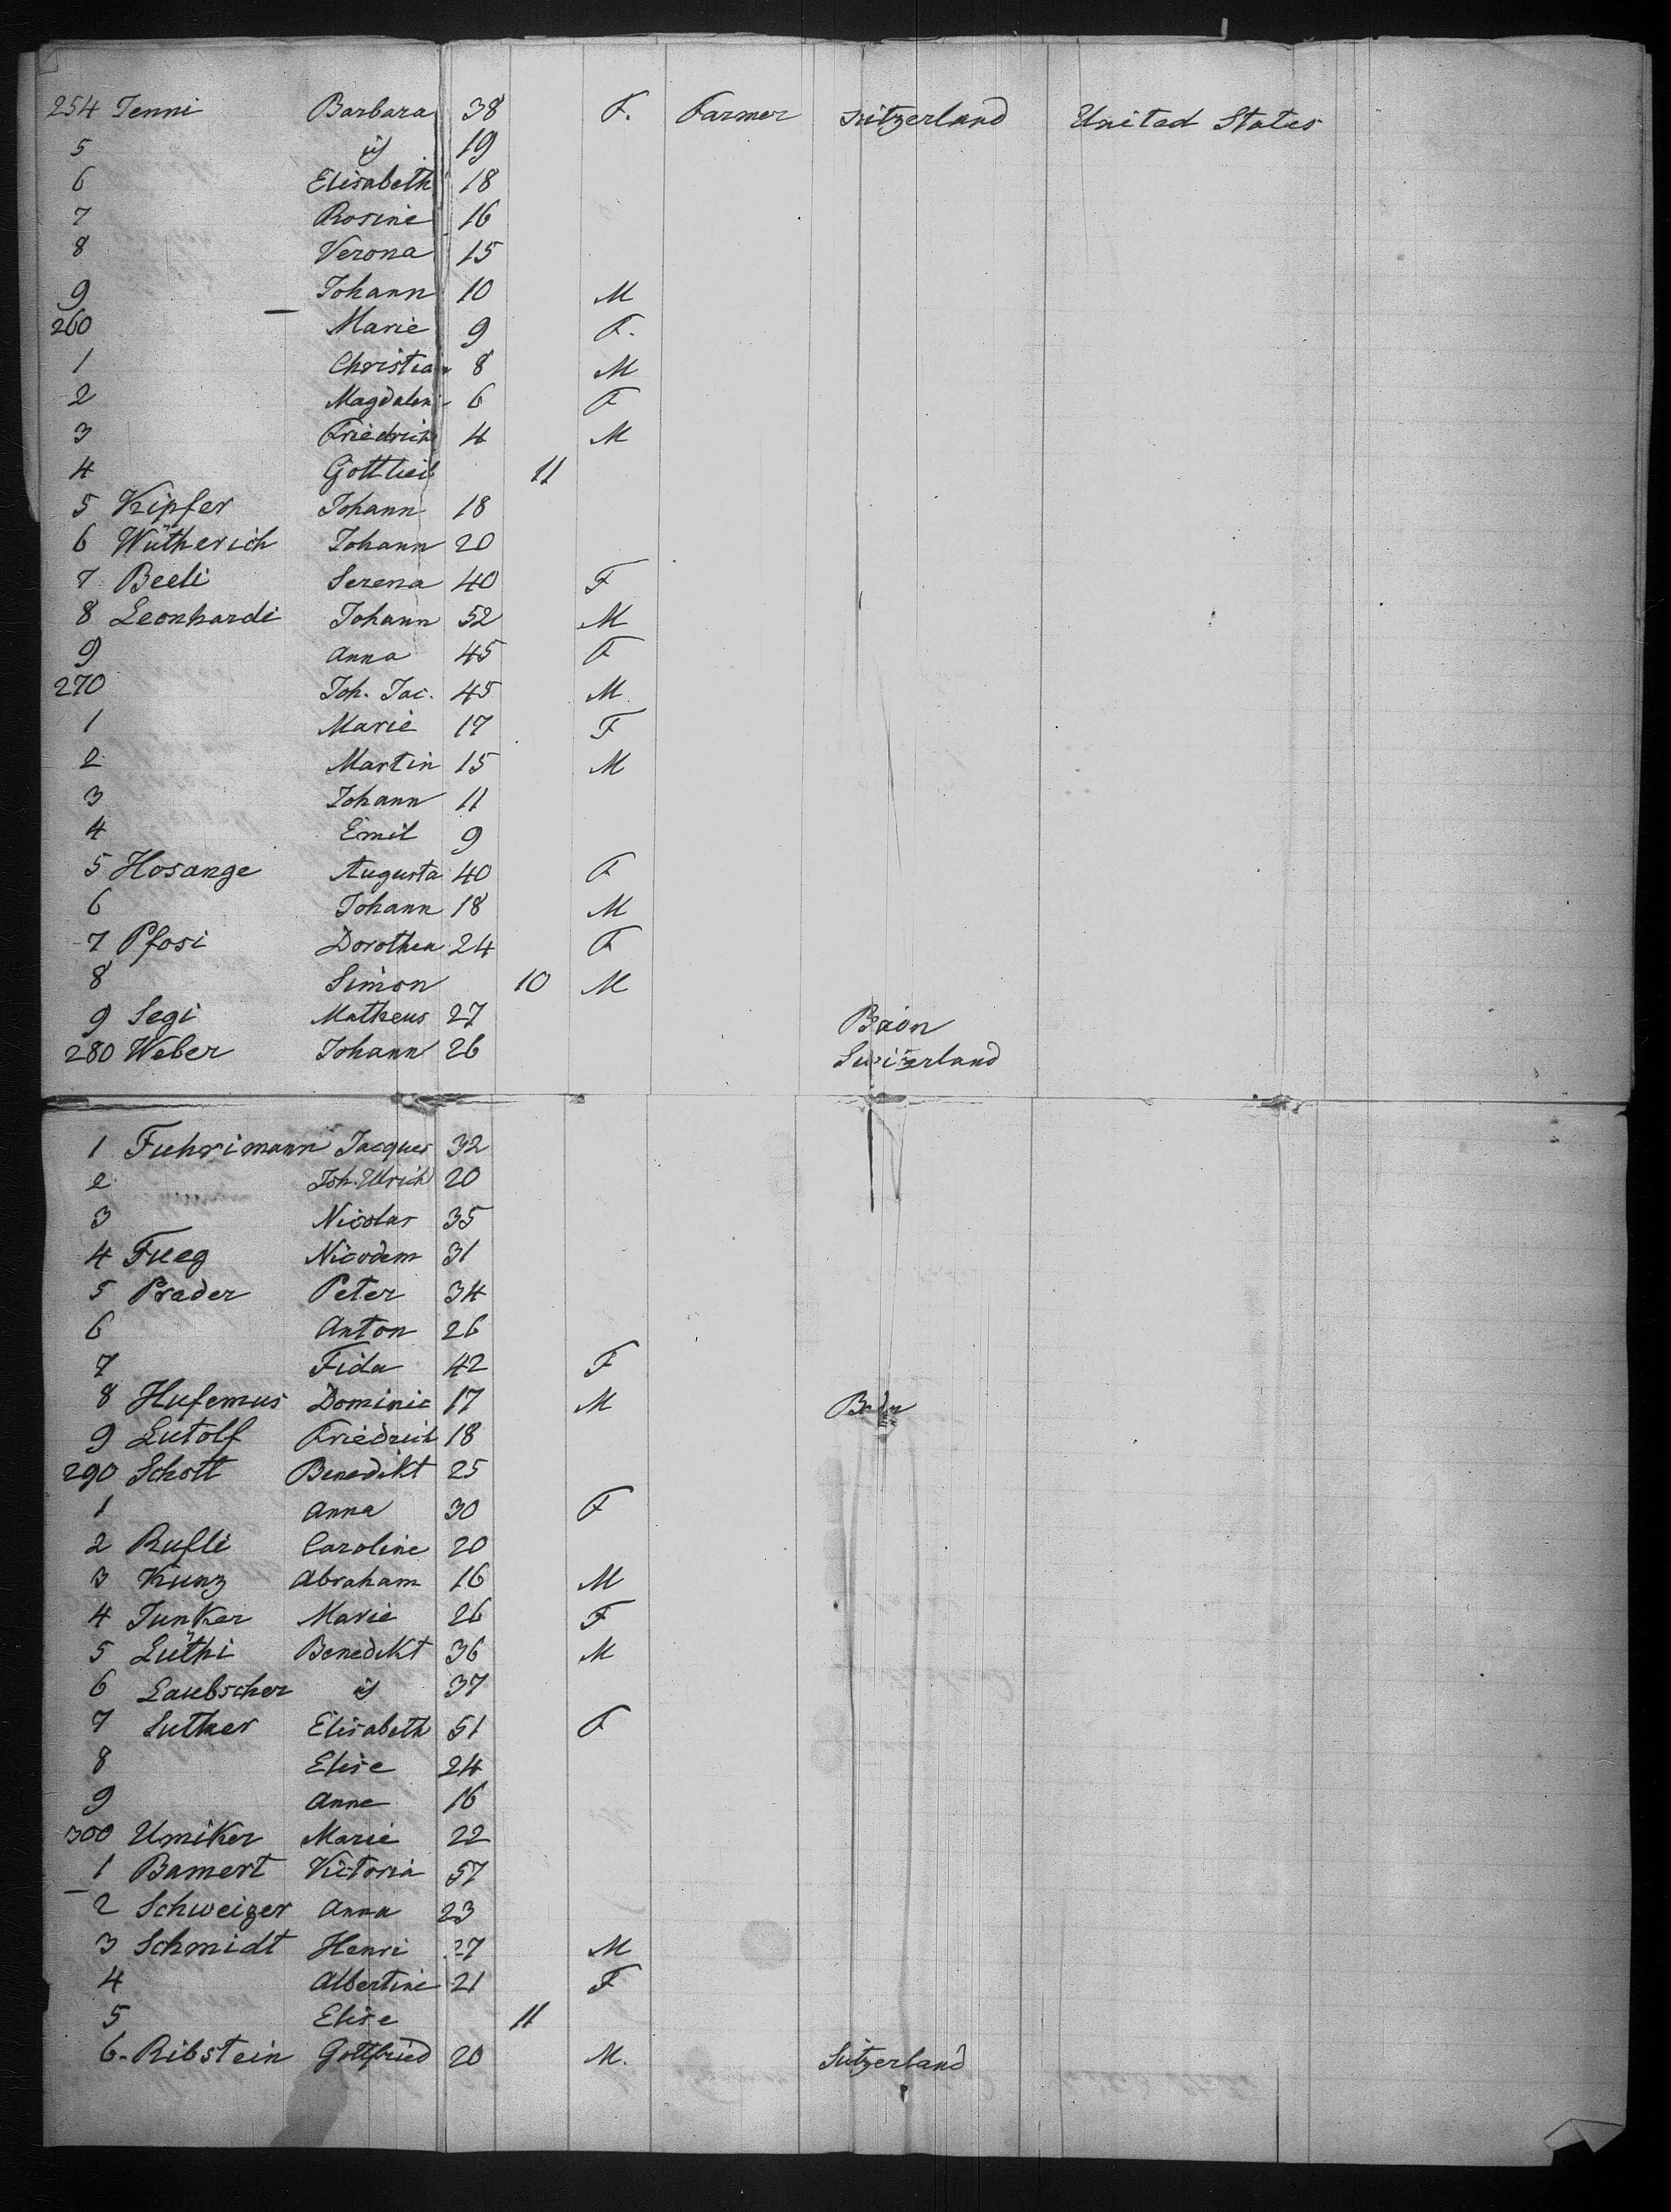 254 Jenni Barbara 38 F. Farmer Sitzerland United States
5 id 19
6 Elisabeth 18
7 Rosine 16
8 Verona 15
9 Johann 10 M
260 Marie 9 F.
1 Christian 8 M
2 Magdalen 6 F
3 Friedrich 4 M
4 Gottlieb 11
5 Kipfer Johann 18
6 Wütherich Johann 20
7 Beeli Serena 40 F
8 Leonhardi Johann 52 M
9 Anna 45 F
270 Joh. Jac. 45 M
1 Marie 17 F
2 Martin 15 M
3 Johann 11
4 Emil 9
5 Hosange Augusta 40 F
6 Johann 18 M
7 Pfosi Dorothea 24 F
8 Simon 10 M
9 Segi Matheus 27
280 Weber Johann 26 Switzerland
1 Fuhrimann Jacques 32
2 Joh. Ulrich 20
3 Nicolas 35
4 Fueg Nicodem 31
5 Prader Peter 34
6 Anton 26
7 Fida 42 F
8 Hufemus Dominic 17 M
9 Lutolf Friedrich 18
290 Schott Benedikt 25
1 Anna 30 F
2 Rufli Caroline 20
3 Kunz Abraham 16 M
4 Junker Marie 26 F
5 Lüthi Benedikt 36 M
6 Laubscher id 37
7 Suther Elisabeth 51 F
8 Elise 24
9 Anne 16
300 Umiker Marie 22
1 Bamert Victoria 57
2 Schweizer Anna 23
3 Schmidt Henri 27 M
4 Albertine 21 F
5 Elise 11
6 - Ribstein Gottfried 20 M. Sitzerland